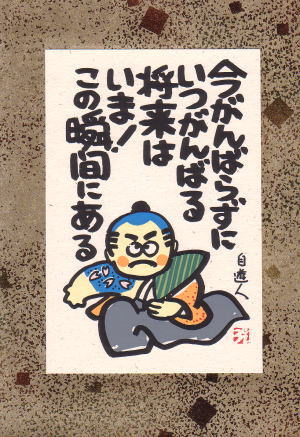 今がんばらずに
いつがんばる
将来は
いま!
この瞬間にある
自遊人